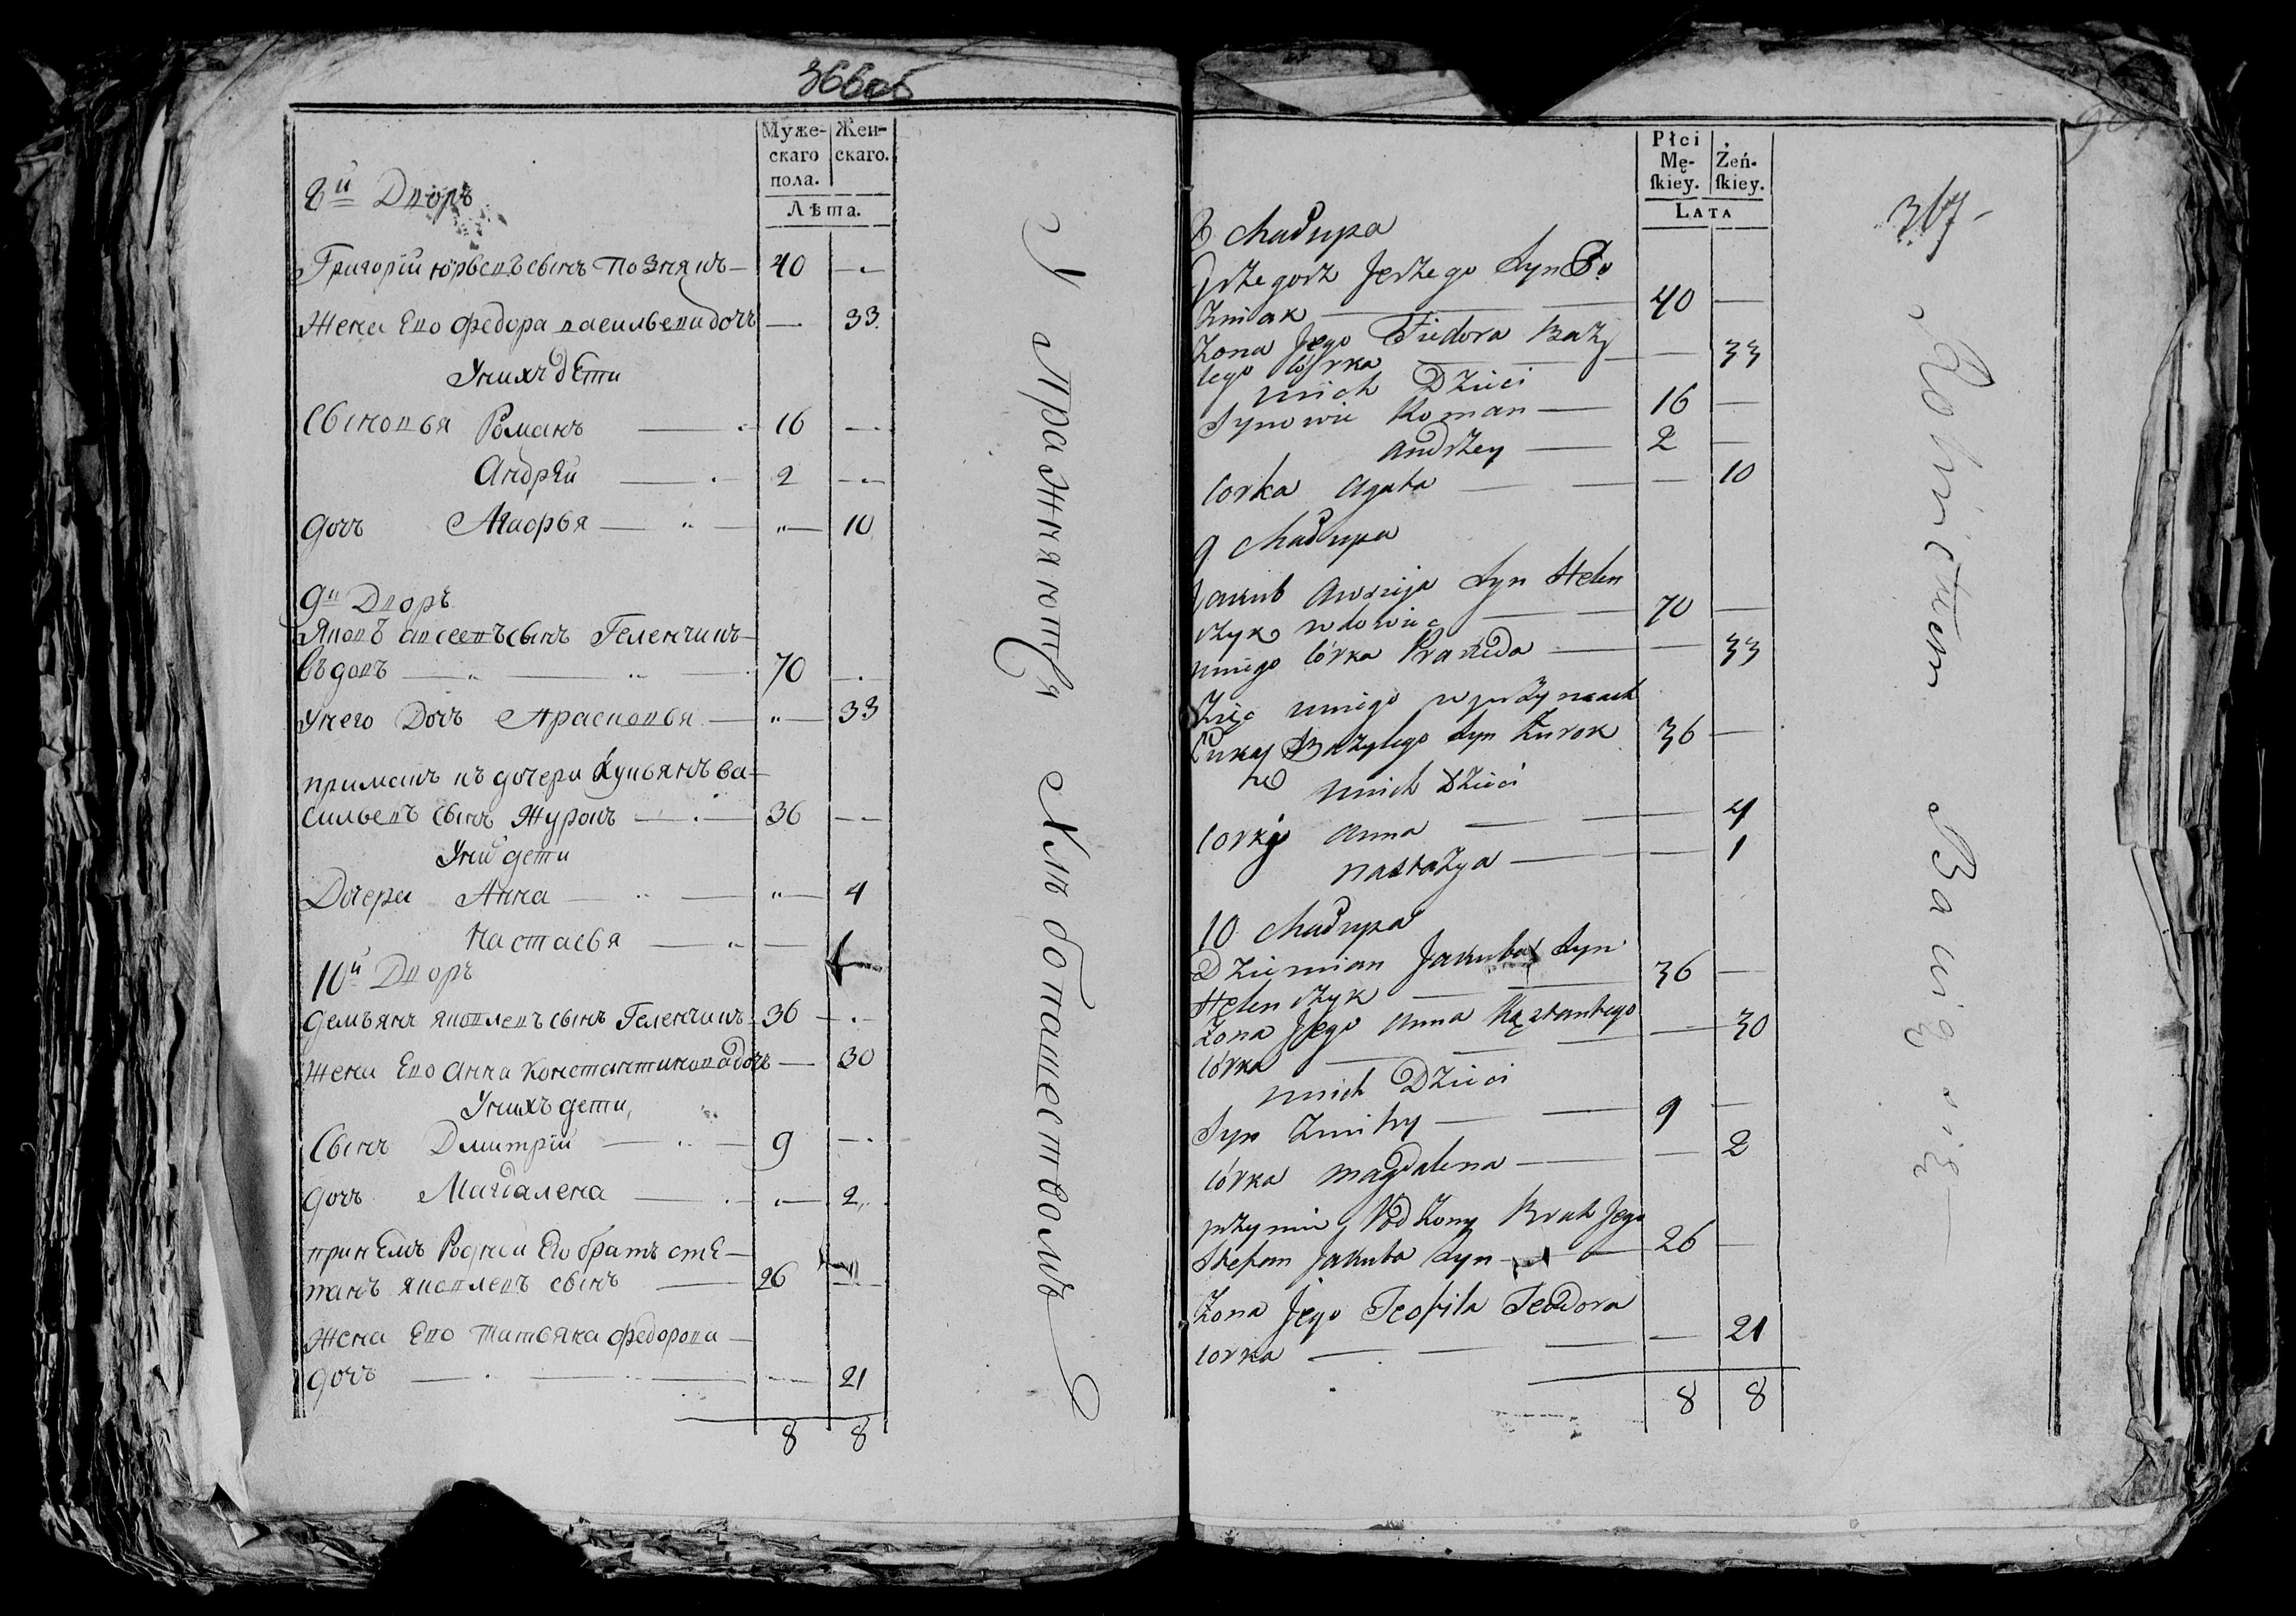 366об
Муже-
скаго
пола.
Жен-
скаго.
Лѣта.
8й Дворъ
Григорій Юрьевъ сынъ Познякъ 40
Жена Его Федора васильева дочь 33
У нихъ дѣти
Сыновья Романъ 16
Андрѣй 2
Дочь Агафья 10
9й Дворъ
Яковъ авсеевъ сынъ Геленчикъ
въдовъ 70
У него Дочь Прасковья 33
примакъ къ дочери Лукьянъ ва-
сильевъ сынъ Журокъ 36
У нихъ дети
Дочери Анна 4
Настасья 1
10й Дворъ
Демьянъ яковлевъ сынъ Геленчикъ 36
Жена Его Анна Константинова дочь 30
У нихъ дети
Сынъ Дмитрій 9
Дочь Магдалена 2
принемъ Родной Его братъ сте-
панъ яковлевъ сынъ 26
Жена Его татьяна федорова
дочь 21
8 8
Упражняются Хлѣбопашествомъ
Płci
Mę-
skiey.
Żeń-
skiey.
Lata
367
8 Chałupa
Grzegorz Jerzego Syn Po
zniak 40
Zona Jego Fiedora Bazy
lego Córka 33
u nich Dzieci
Synowie Roman 16
Andrzey 2
Corka Agata 10
9 Chałupa
Jakub Awsieja Syn Helen
czyk wdowiec 70
u niego Córka Praxeda 33
Zięć u niego w przymach
Łukasz Bazylego Syn Żurok 36
u nich Dzieci
Corki Anna 4
Nastazya 1
10 Chałupa
Dziemian Jakuba Syn
Helenczyk 36
Zona Jego Anna Kąstantego
Córka 30
u nich Dzieci
Syn Zmitry 9
Córka Magdalena 2
Brat Jego
Stefan Jakuba Syn 26
Zona Jego Teofila Teodora
Corka 21
8 8
Rolnictwem Bawią się